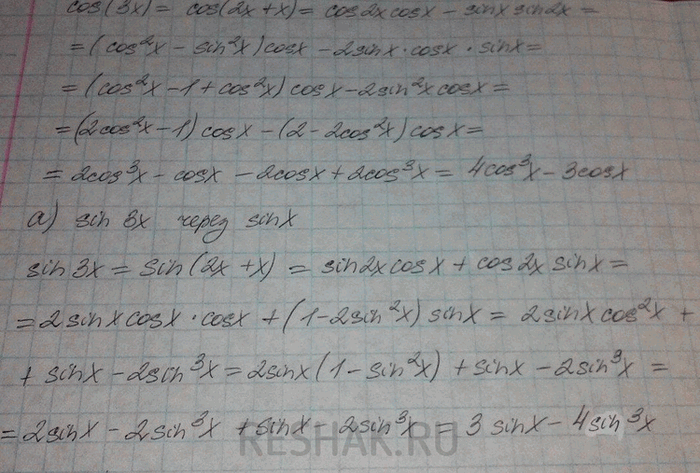 cos(3x) = cos(2x + x) = cos2x cosx - sinx sin2x =
= (cos²x - sin²x) cosx - 2sinx · cosx · sinx =
= (cos²x - 1 + cos²x) cosx - 2sin²x cosx =
= (2cos²x - 1) cosx - (2 - 2cos²x) cosx =
= 2cos³x - cosx - 2cosx + 2cos³x = 4cos³x - 3cosx
а) sin 3x через sinx
sin3x = sin(2x + x) = sin2x cosx + cos2x sinx =
= 2sinx cosx · cosx + (1 - 2sin²x) sinx = 2sinx cos²x +
+ sinx - 2sin³x = 2sinx (1 - sin²x) + sinx - 2sin³x =
= 2sinx - 2sin³x + sinx - 2sin³x = 3sinx - 4sin³x
RESHAK.RU